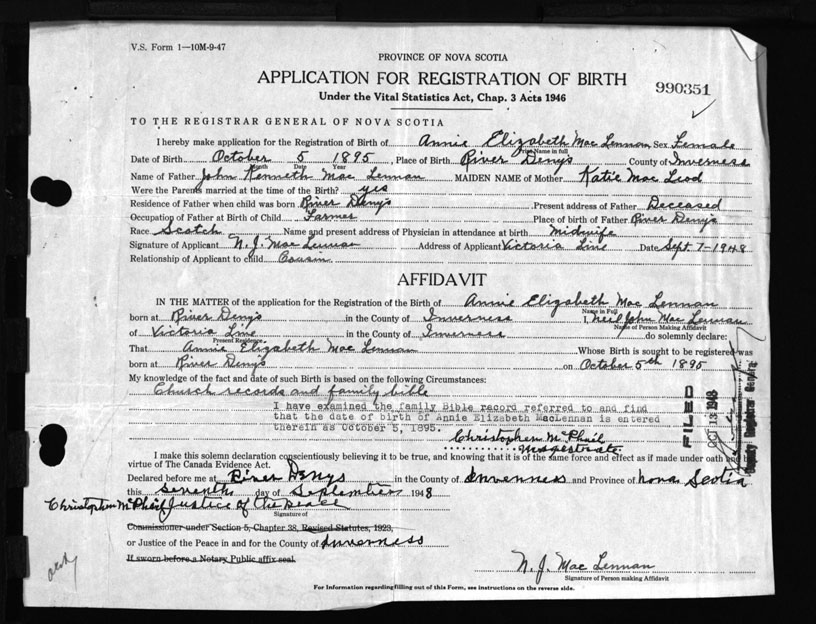 V.S. Form 1—10M-9-47
PROVINCE OF NOVA SCOTIA
APPLICATION FOR REGISTRATION OF BIRTH
990351
Under the Vital Statistics Act, Chap. 3 Acts 1946
TO THE REGISTRAR GENERAL OF NOVA SCOTIA
I hereby make application for the Registration of Birth of Annie Elizabeth Mac Lennan Sex Female
Print Name in full
Date of Birth October 5 1895, Place of Birth River Denys County of Inverness
Month Date Year
Name of Father John Kenneth Mac Lennan MAIDEN NAME of Mother Katie Mac Leod
Were the Parents married at the time of the Birth? yes
Residence of Father when child was born River Denys Present address of Father Deceased
Occupation of Father at Birth of Child Farmer Place of birth of Father River Denys
Race Scotch Name and present address of Physician in attendance at birth midwife
Signature of Applicant N. J. Mac Lennan Address of Applicant Victoria Line Date Sept. 7-1948
Relationship of Applicant to child Cousin
AFFIDAVIT
IN THE MATTER of the application for the Registration of the Birth of Annie Elizabeth Mac Lennan
Name in Full
born at River Denys in the County of Inverness I, Neil John Mac Lennan
Name of Person Making Affidavit
of Victoria Line in the County of Inverness do solemnly declare:
Present Residence
That Annie Elizabeth Mac Lennan Whose Birth is sought to be registered was
born at River Denys on October 5th 1895
My knowledge of the fact and date of such Birth is based on the following Circumstances:
Church records and family bible
I have examined the family Bible record referred to and find
that the date of birth of Annie Elizabeth MacLennan is entered
therein as October 5, 1895.
Christopher McPhail
Magistrate
FILED
OCT 13 1948
Deputy Registrar General
I make this solemn declaration conscientiously believing it to be true, and knowing that it is of the same force and effect as if made under oath and by
virtue of The Canada Evidence Act.
Declared before me at River Denys in the County of Inverness and Province of Nova Scotia
this seventh day of September 1948
Christopher McPhail Justice of the peace
Signature of
Commissioner under Section 5, Chapter 38, Revised Statutes, 1923,
or Justice of the Peace in and for the County of Inverness
If sworn before a Notary Public affix seal.
N. J. Mac Lennan
Signature of Person making Affidavit
For Information regarding filling out of this Form, see instructions on the reverse side.